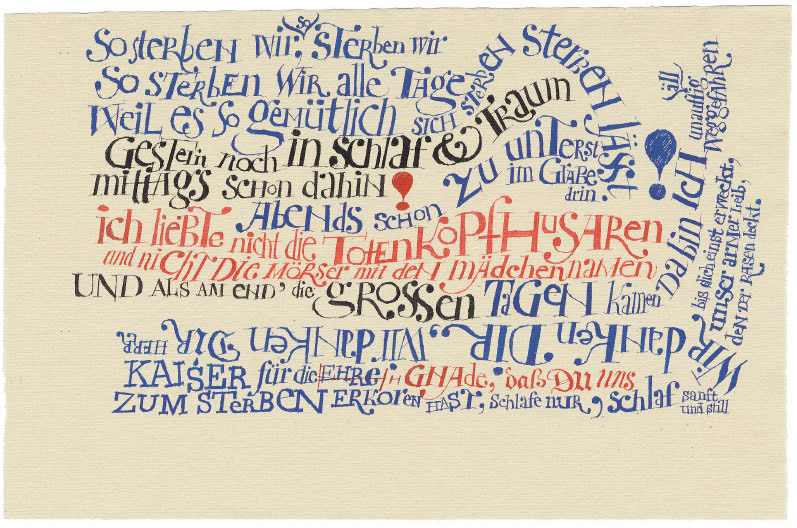 So sterben wir, so sterben wir
So sterben wir alle Tage
Weil es so gemütlich sich sterben sterben lässt
Gestern noch in schlaf & Traum
mittags schon dahin!
Abends schon zu unterst im Grabe drin. !
ich liebte nicht die TotenkopfHusaren
und nicht die Mörser mit den Mädchennamen
UND ALS AM END' die grossen Tagen kamen
Da bin ICH unauffällig weggefahren
Wir danken DIR, wir danken DIR HERR
KAISER für die EHRE GNADE, daß DU uns
ZUM STERBEN ERKOREN HAST; schlafe nur, schlaf sanft und still
bis dich einst erweckt,
unser armer Leib,
den der Rasen deckt.